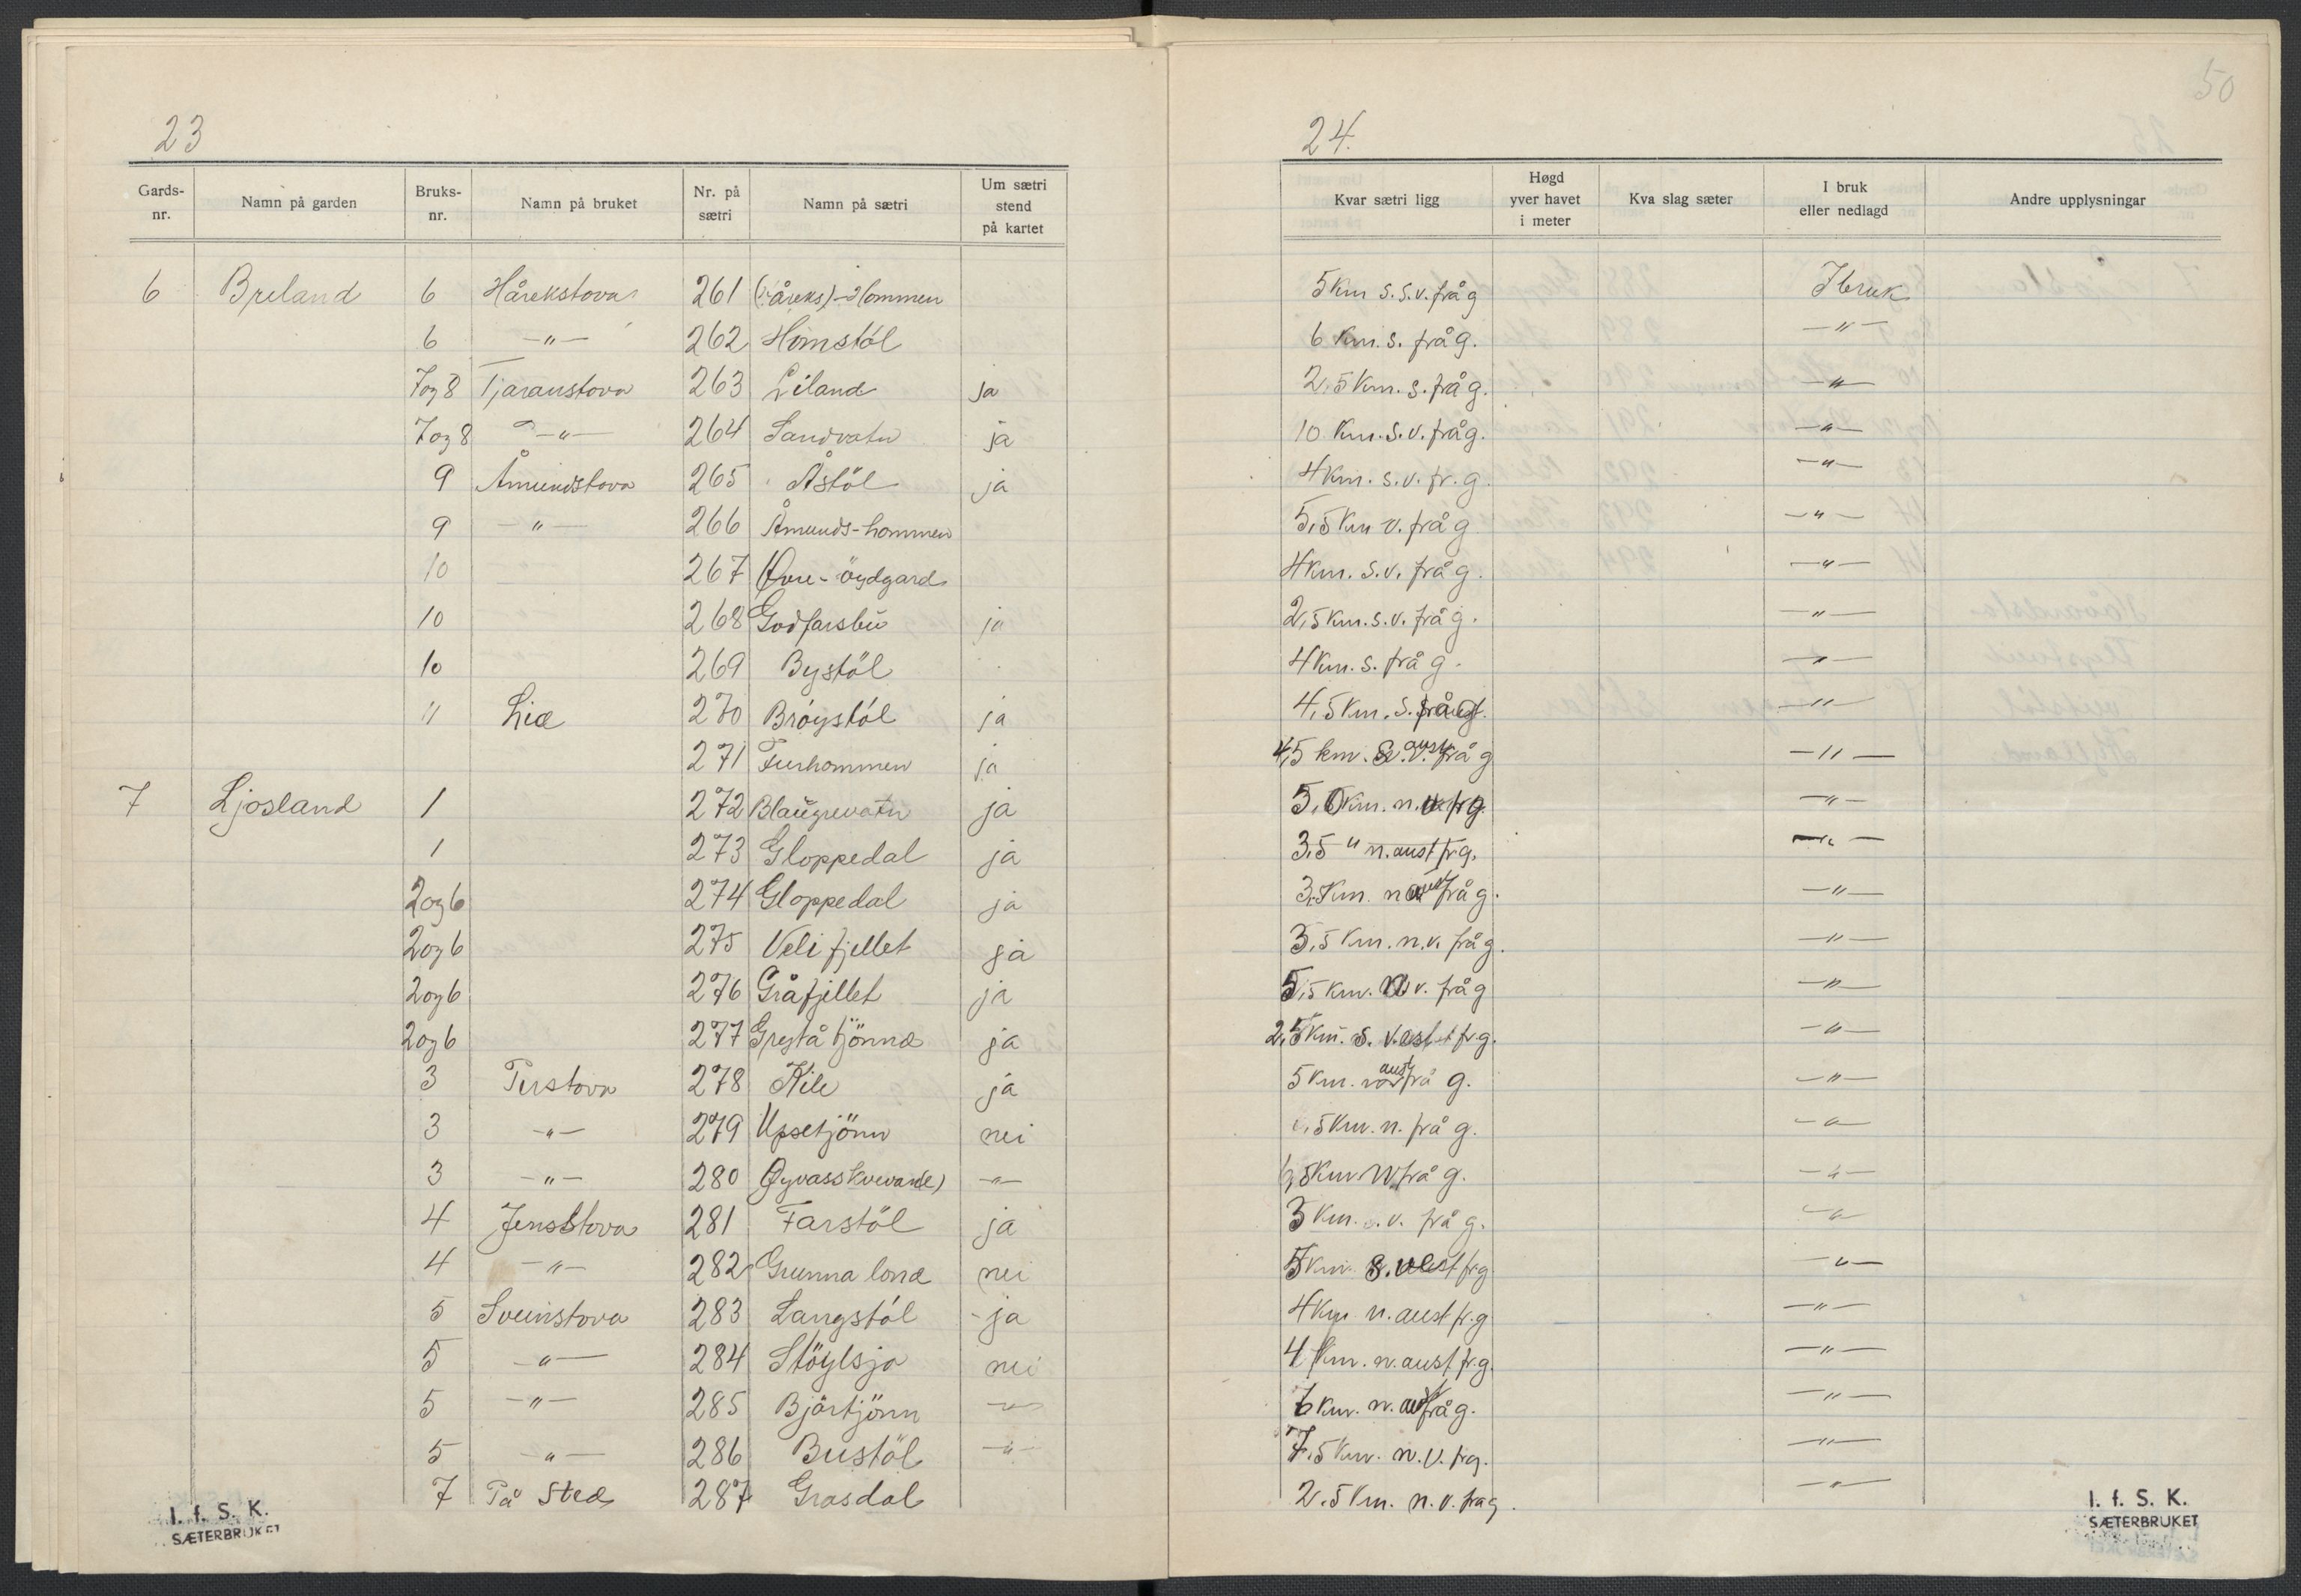 23
Gards-nr. Namn på garden Bruks-nr. Namn på bruket Nr. på sætri Namn på sætri Um sætri stend på kartet
6 Breland 6 Hårekstova 261 (Håreks)-Hommen
6 -"- 262 Homstöl
7og8 Tjaranstova 263 Liland ja
7og8 -"- 264 Sandvatn ja
9 Åmundstova 265 Åstöl ja
9 -"- 266 Åmunds-hommen
10 267 Øvre-öydgard
10 268 Godfarsbu ja
10 269 Bystöl
11 Lia 270 Bröystöl ja
271 Furhommen ja
7 Ljosland 1 272 Blaugrevatn ja
1 273 Gloppedal ja
2og6 274 Gloppedal ja
2og6 275 Velifjellet ja
2og6 276 Gråfjellet ja
2og6 277 Greytå tjönna ja
3 Perstova 278 Kile ja
3 -"- 279 Upsetjönn nei
3 -"- 280 -"-
4 Jensstova 281 Farstöl ja
4 -"- 282 Grunna lona nei
5 Sveinstova 283 Langstöl ja
5 -"- 284 Stöylsja nei
5 -"- 285 Bjärtjönn -"-
5 -"- 286 Bustöl -"-
7 På Sted 287 Grasdal
I. f. S. K.
SÆTERBRUKET
50
24.
Kvar sætri ligg Høgd yver havet i meter Kva slag sæter I bruk eller nedlagd Andre upplysningar
5 km s.s.v. frå g Ibruk
6 km. s. frå g. -"-
2,5 km. s. frå g. -"-
10 km. s.v. frå g. -"-
4 km. s.v. fr. g. -"-
5,5 km v. frå g -"-
4 km. s.v. frå g. -"-
2,5 km. s.v. frå g. -"-
4 km. s. frå g. -"-
4,5 km. s. frå g. -"-
4,5 km. aust frå g -"-
5,0 km. n. fr g. -"-
3,5 " n. aust fr g. -"-
3 km. n aust frå g. -"-
3,5 km. n.v. frå g. -"-
5,5 km. v. frå g -"-
2,5 km. s. vest fr g. -"-
5 km. aust frå g. -"-
5 km. n. frå g. -"-
5 km. frå g. -"-
3 km. v. frå g. -"-
5 km. s. vest fr g -"-
4 km n. aust fr. g -"-
4 km. n. aust fr g. -"-
6 km. n. aust frå g. -"-
7,5 km. n.v. fr g. -"-
2,5 km. n.v. frå g. -"-
I. f. S. K.
SÆTERBRUKET